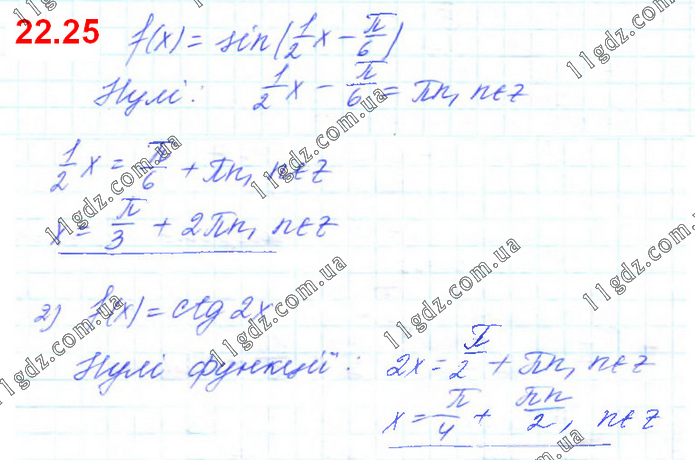 22.25
f(x) = sin(1/2 x - π/6)
Нулі: 1/2 x - π/6 = πn, n∈z
1/2 x = π/6 + πn, n∈z
x = π/3 + 2πn, n∈z
2) f(x) = ctg 2x
Нулі функції: 2x = π/2 + πn, n∈z
x = π/4 + πn/2, n∈z
11gdz.com.ua
11gdz.com.ua
11gdz.com.ua
11gdz.com.ua
11gdz.com.ua
11gdz.com.ua
11gdz.com.ua